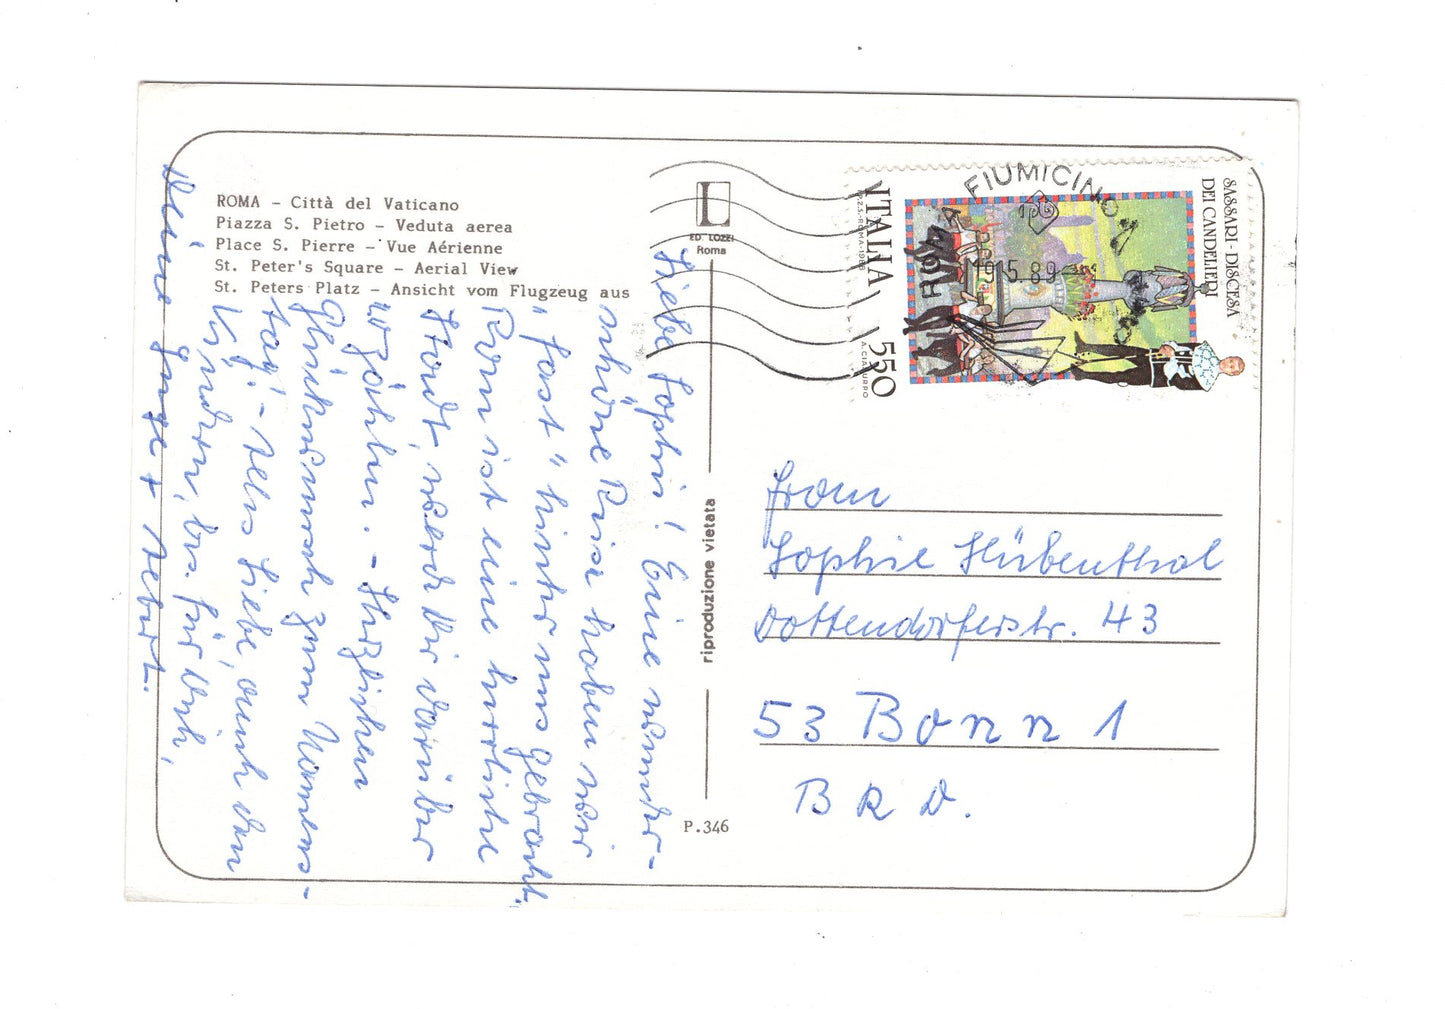 ROMA - Città del Vaticano
Piazza S. Pietro - Veduta aerea
Place S. Pierre - Vue Aérienne
St. Peter's Square - Aerial View
St. Peters Platz - Ansicht vom Flugzeug aus
L
ED. LOZZI
Roma
Liebe Sophie! Eine wunder-
schöne Reise haben wir
"fast" hinter uns gebracht.
Rom ist eine herrliche
Stadt, werde Dir darüber
erzählen. - Herzlichen
Glückwunsch zum Namens-
tag! - Alles Liebe, auch den
Kindern, bes. für Dich,
Deine Inge + Hebert.
riproduzione vietata
P.346
ROMA FIUMICINO
19 5.89
ITALIA 550
I.P.Z.S.-ROMA-1988
A.CIABURRO
SASSARI - DISCESA
DEI CANDELIERI
Frau
Sophie Hübenthal
Dottendorferstr. 43
53 Bonn 1
BRD.